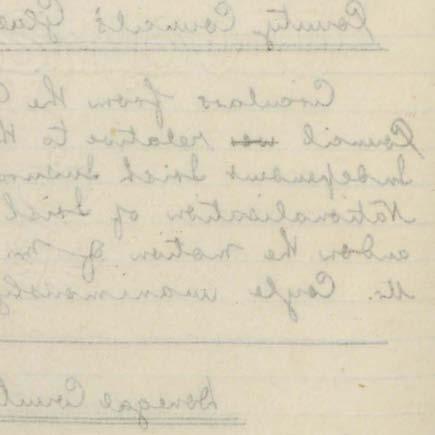 County Council's
Circulars from the
Council relative to
Independent Irish
Nationalisation of Irish
and on the motion of
Mr. Coyle unanimously
Donegal